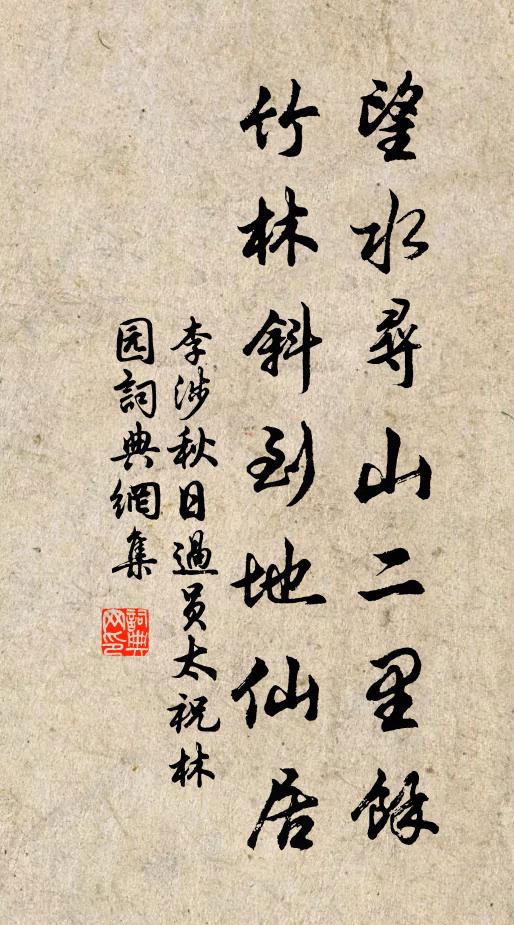 望水尋山二里餘
竹林斜到地仙居
李涉秋日過員太祝林
园詞典網集
詞典网印